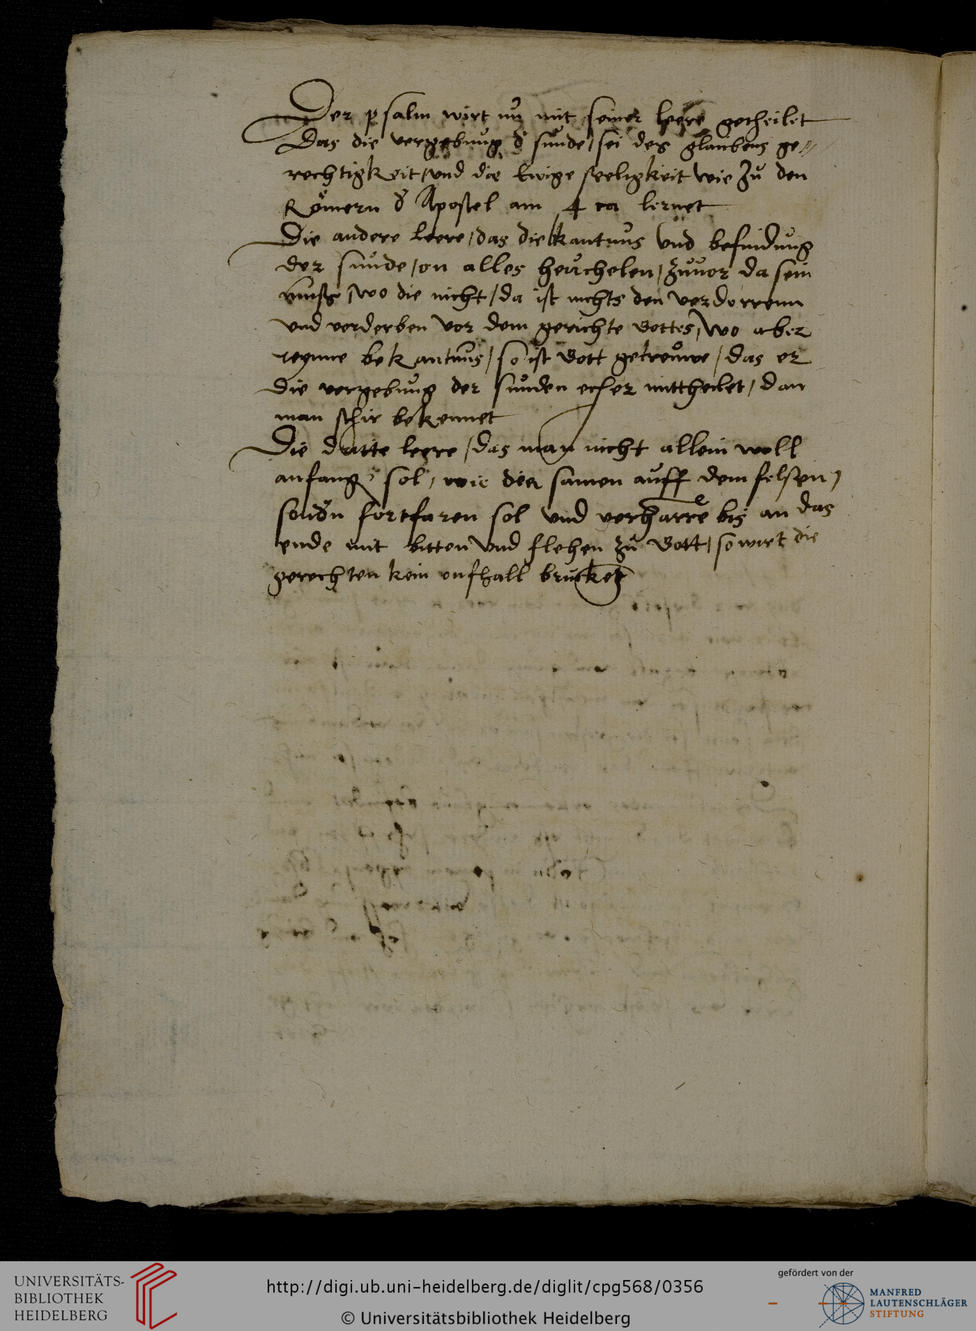 Der psalm wirt nu mit seiner leere getheilet
Das die vergebung d sunde / sei des glaubens ge⸗
rechtigkeit / und die Ewige seeligkeit wie zu den
Römern d Apostel am 4 ca lernet
Die andere leere / das die kantnus und befindung
der sunde / on alles heuchelen / zuvor da sein
muss / wo die nicht / da ist nichts den verdorrenn
und verderben vor dem gerichte Gottes / wo aber
reynne bekantnus / so ist Gott getreuwe / das er
die vergebung der sunden eher mittheilet / dan
man schir bekennet
Die dritte leere / das man nicht allein woll
anfang sol / wie der samen auff dem felsen /
sondn fortfaren sol und verharre bis an das
ende mit bitten und flehen zu Gott / so wirt die
gerechten kein unfhall drucken
UNIVERSITÄTS-
BIBLIOTHEK
HEIDELBERG
http://digi.ub.uni-heidelberg.de/diglit/cpg568/0356
© Universitätsbibliothek Heidelberg
gefördert von der
MANFRED
LAUTENSCHLÄGER
STIFTUNG